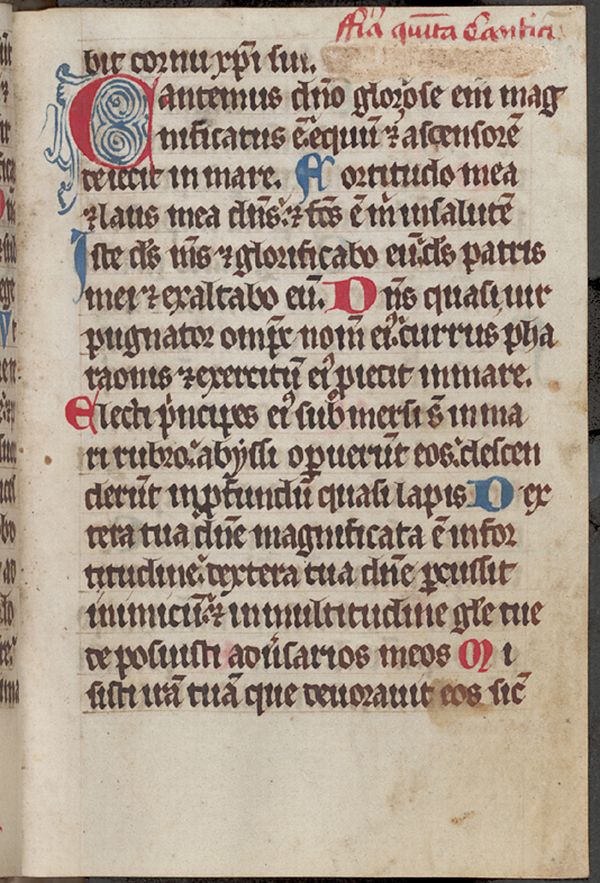 fīa quīta Cantic̄
bit cornu xp̄i sui.
Cantemus dn̄o gloriose enī mag
nificatus ē: equū ⁊ ascensorē
deiecit in mare. Fortitudo mea
⁊ laus mea dn̄s: ⁊ fc̄s ē m̄ in salutē
Iste ds̄ ms̄ ⁊ glorificabo eū: ds̄ patris
mei ⁊ exaltabo eū. Dn̄s quasi uir
pugnator omp̄s nom̄ eiꝰ: currus pha
raonis ⁊ exercitū eiꝰ ꝓiecit in mare.
Electi p̄ncipes eiꝰ submersi s̄ in ma
ri rubro: abyssi opuerūt eos: descen
derūt in ꝓfundū quasi lapis Dex
tera tua dn̄e magnificata ē in for
titudine: dextera tua dn̄e ꝑcussit
inimicū: ⁊ in multitudine gl̄e tue
deposuisti adūsarios meos Mi
sisti irā tuā que deuorauit eos sic̄